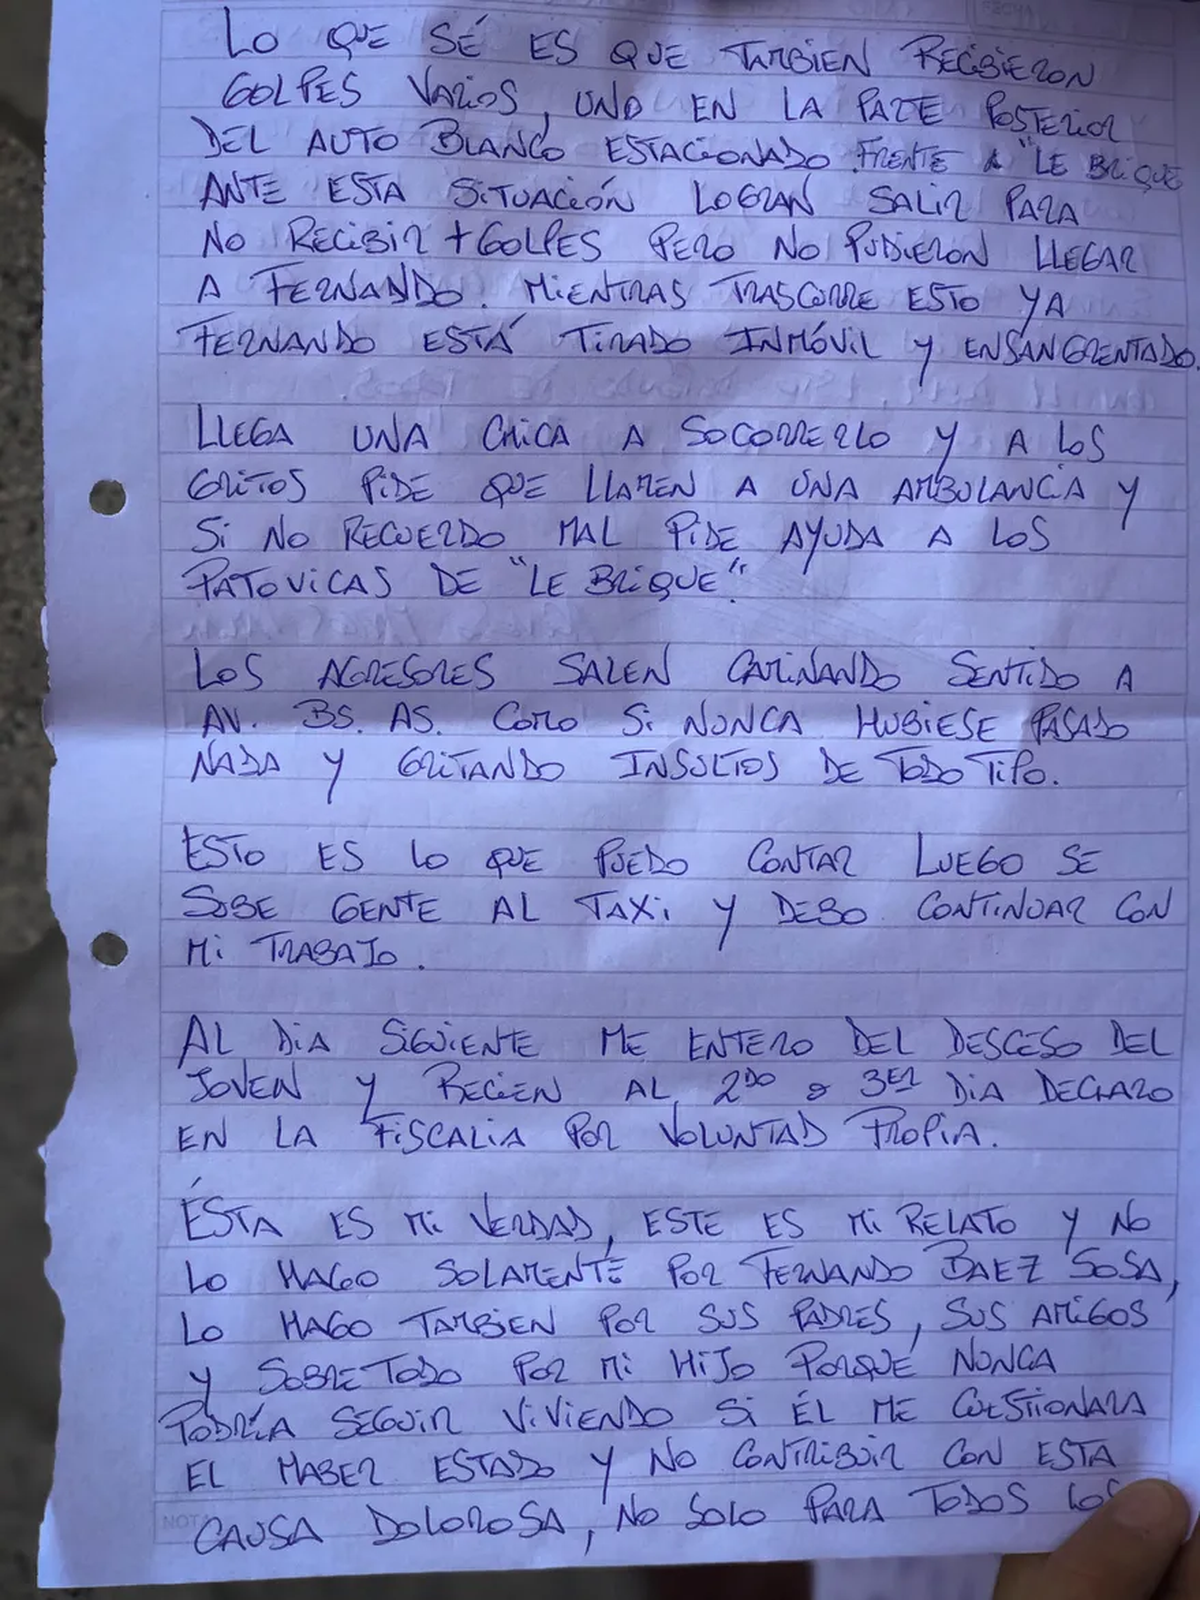 FECHA
LO QUE SÉ ES QUE TAMBIEN RECIBIERON
GOLPES VARIOS, UNO EN LA PARTE POSTERIOR
DEL AUTO BLANCO ESTACIONADO FRENTE A "LE BRIQUE
ANTE ESTA SITUACIÓN LOGRAN SALIR PARA
NO RECIBIR + GOLPES PERO NO PUDIERON LLEGAR
A FERNANDO. MIENTRAS TRASCURRE ESTO YA
FERNANDO ESTÁ TIRADO INMÓVIL Y ENSANGRENTADO.
LLEGA UNA CHICA A SOCORRERLO Y A LOS
GRITOS PIDE QUE LLAMEN A UNA AMBULANCIA Y
SI NO RECUERDO MAL PIDE AYUDA A LOS
PATOVICAS DE "LE BRIQUE".
LOS AGRESORES SALEN CAMINANDO SENTIDO A
AV. BS. AS. COMO SI NUNCA HUBIESE PASADO
NADA Y GRITANDO INSULTOS DE TODO TIPO.
ESTO ES LO QUE PUEDO CONTAR LUEGO SE
SUBE GENTE AL TAXI Y DEBO CONTINUAR CON
MI TRABAJO.
AL DIA SIGUIENTE ME ENTERO DEL DESCESO DEL
JOVEN Y RECIEN AL 2DO o 3ER DIA DECLARO
EN LA FISCALIA POR VOLUNTAD PROPIA.
ÉSTA ES MI VERDAD, ESTE ES MI RELATO Y NO
LO HAGO SOLAMENTE POR FERNANDO BAEZ SOSA,
LO HAGO TAMBIEN POR SUS PADRES, SUS AMIGOS
Y SOBRETODO POR MI HIJO PORQUÉ NUNCA
PODRÍA SEGUIR VIVIENDO SI ÉL ME CUESTIONARA
EL HABER ESTADO Y NO CONTRIBUIR CON ESTA
NOTA
CAUSA DOLOROSA, NO SOLO PARA TODOS LOS